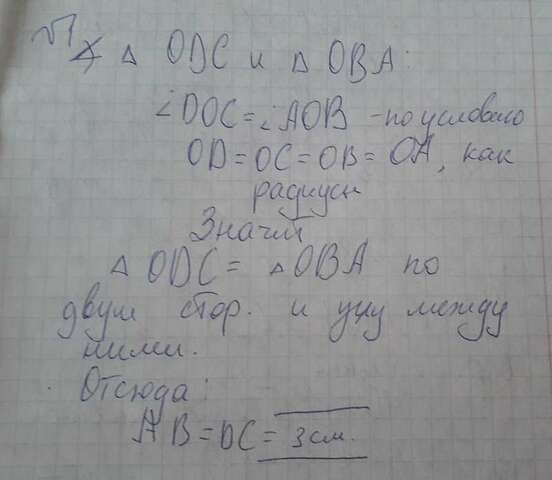 √1 ∠ △ ODC и △ OBA:
∠DOC = ∠AOB - по условию
OD = OC = OB = OA, как
радиусы
Значит
△ ODC = △ OBA по
двум стор. и углу между
ними.
Отсюда:
AB = DC = 3 см.